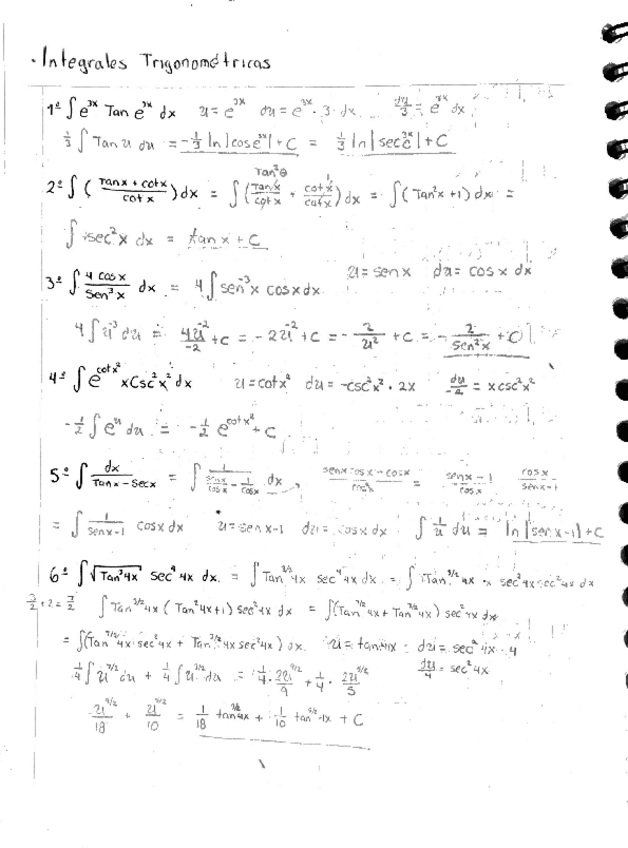 · Integrales Trigonométricas
1º ∫ e^3x Tan e^3x dx   u = e^3x   du = e^3x · 3 · dx   du/3 = e^3x dx
1/3 ∫ Tan u du = -1/3 ln|cos e^3x| + C = 1/3 ln|sec e^3x| + C
2º ∫ (Tanx + cotx / cot x) dx = ∫ (Tanx/cotx + cotx/cotx) dx = ∫ (Tan²x + 1) dx =
∫ sec²x dx = tanx + C
3º ∫ 4 cosx / Sen³x dx = 4 ∫ sen⁻³x cosx dx   u = senx   du = cos x dx
4 ∫ u⁻³ du = 4u⁻²/-2 + c = -2u⁻² + c = -2/u² + c = -2/Sen²x + C
4º ∫ e^cotx² x Csc²x² dx   u = cotx²   du = -csc²x² · 2x   du/-2 = x csc²x²
-1/2 ∫ e^u du = -1/2 e^cotx² + C
5º ∫ dx / Tanx - Secx = ∫ 1 / (senx/cosx - 1/cosx) dx   senx - 1 / cosx   cosx / senx - 1
= ∫ 1/senx-1 cosx dx   u = senx-1   du = cosx dx   ∫ 1/u du = ln|senx-1| + C
6º ∫ √Tan³4x sec⁴4x dx = ∫ Tan^3/2 4x sec⁴4x dx = ∫ Tan^3/2 4x · sec²4x sec²4x dx
3/2 + 2 = 7/2   ∫ Tan^3/2 4x (Tan²4x + 1) sec²4x dx = ∫ (Tan^7/2 4x + Tan^3/2 4x) sec²4x dx
= ∫ (Tan^7/2 4x · sec²4x + Tan^3/2 4x sec²4x) dx   u = tan4x   du = sec²4x · 4
1/4 ∫ u^7/2 du + 1/4 ∫ u^3/2 du = 1/4 · 2u^9/2 / 9 + 1/4 · 2u^5/2 / 5   du/4 = sec²4x
2u^9/2 / 18 + 2u^5/2 / 10 = 1/18 tan^9/2 4x + 1/10 tan^5/2 4x + C